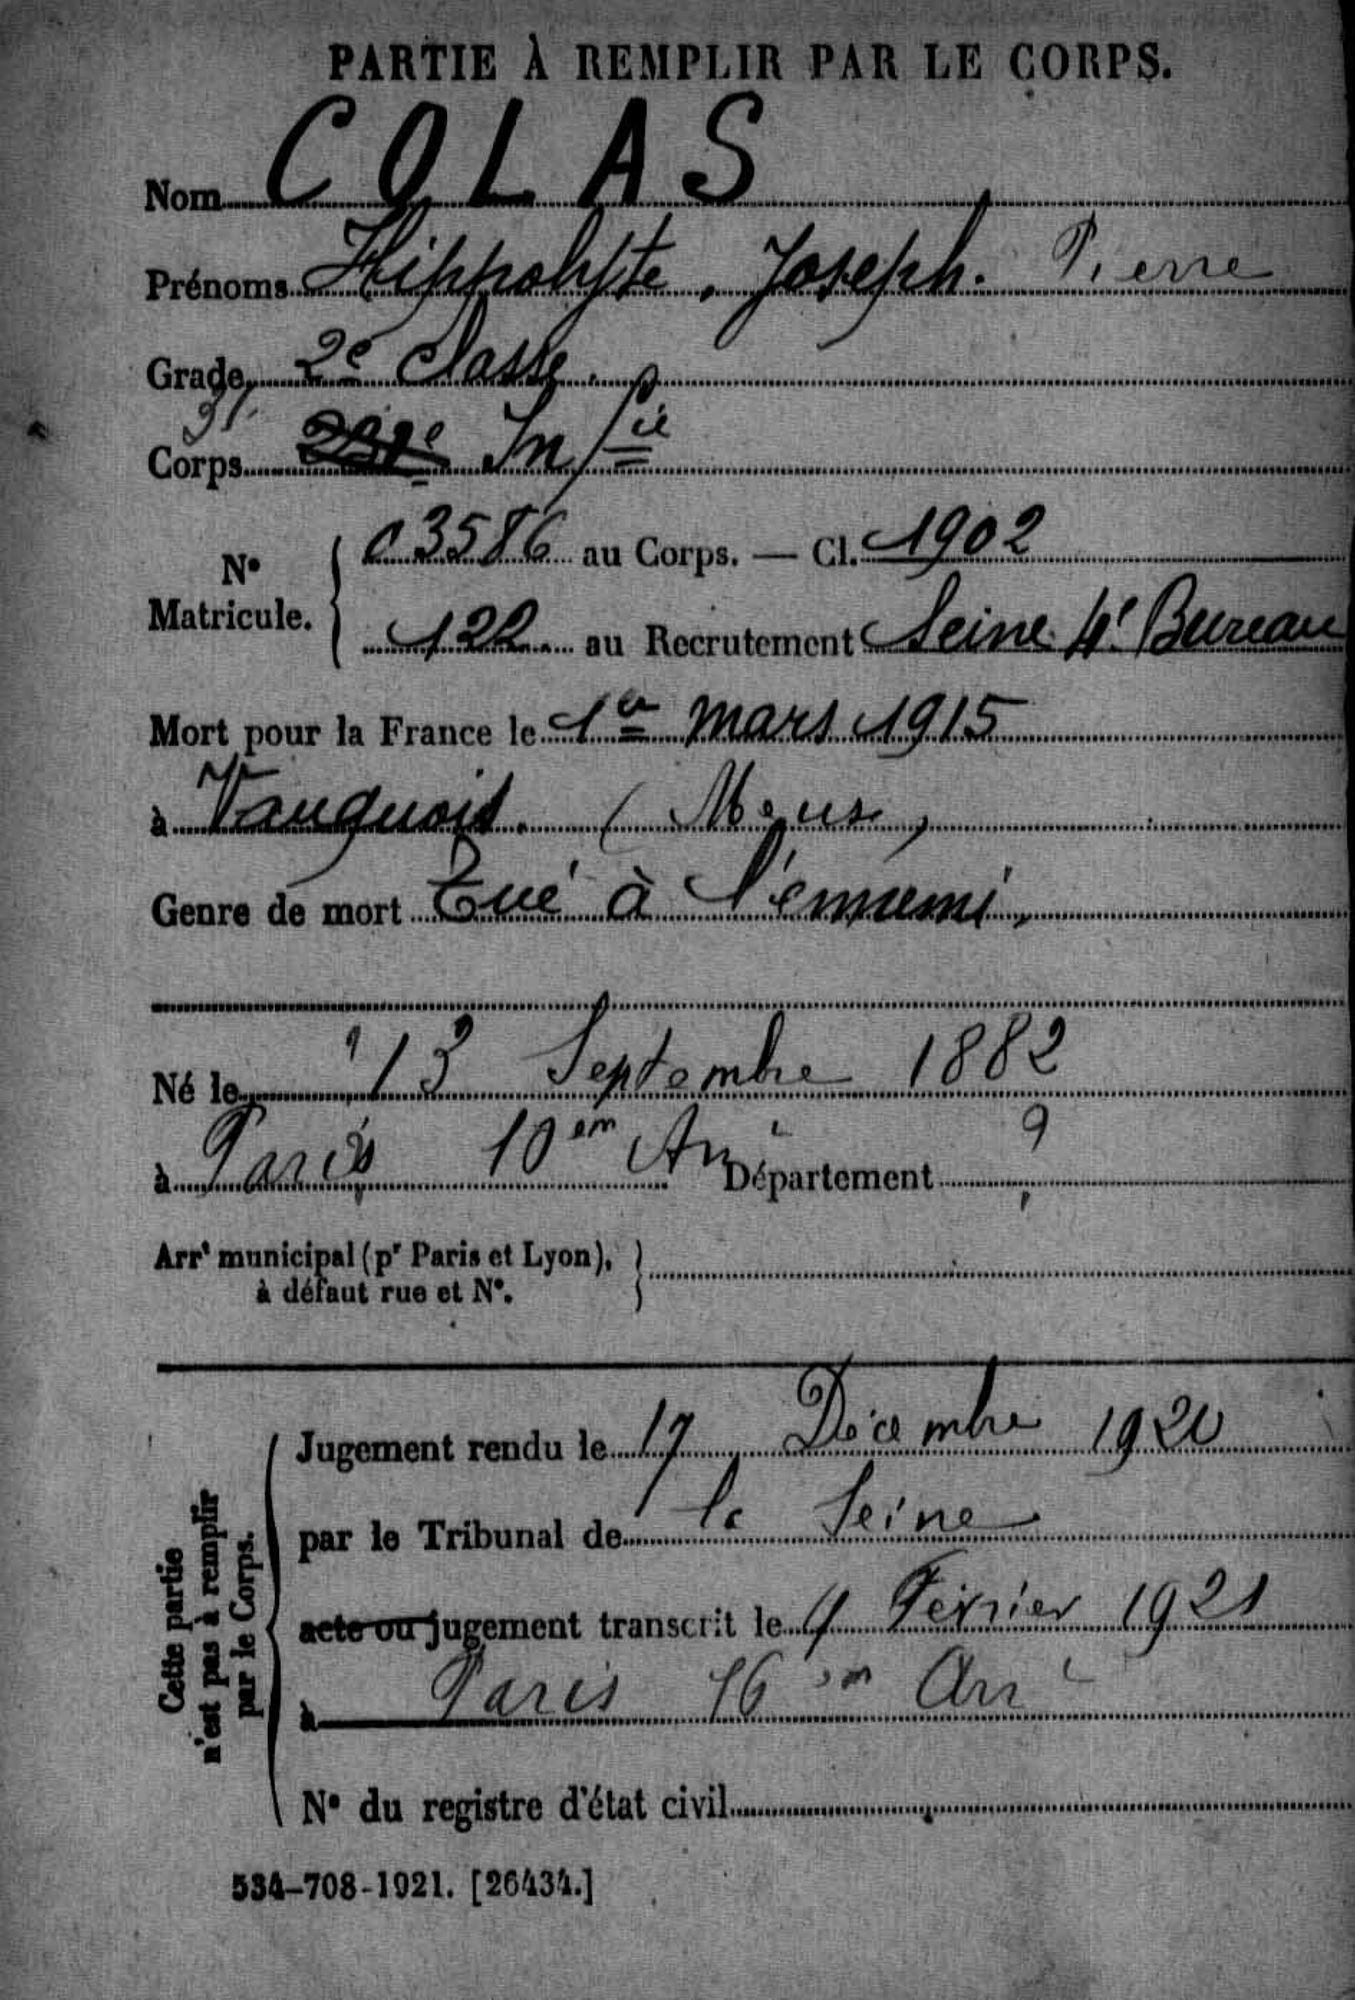 PARTIE À REMPLIR PAR LE CORPS.
Nom COLAS
Prénoms Hippolyte, Joseph. Pierre
Grade 2e classe.
31
Corps Infie
No Matricule. c 3586 au Corps. — Cl. 1902
122. au Recrutement Seine 4e Bureau
Mort pour la France le 1er mars 1915
à Vauquois. (Meuse)
Genre de mort Tué à l'ennemi.
Né le 13 Septembre 1882
à Paris 10em Arr Département ?
Arrt municipal (pr Paris et Lyon),
à défaut rue et No.
Cette partie
n'est pas à remplir
par le Corps.
Jugement rendu le 17 Décembre 1920
par le Tribunal de la Seine
acte ou jugement transcrit le 9 Février 1921
à Paris 16em Arr
No du registre d'état civil
534-708-1921. [26434.]